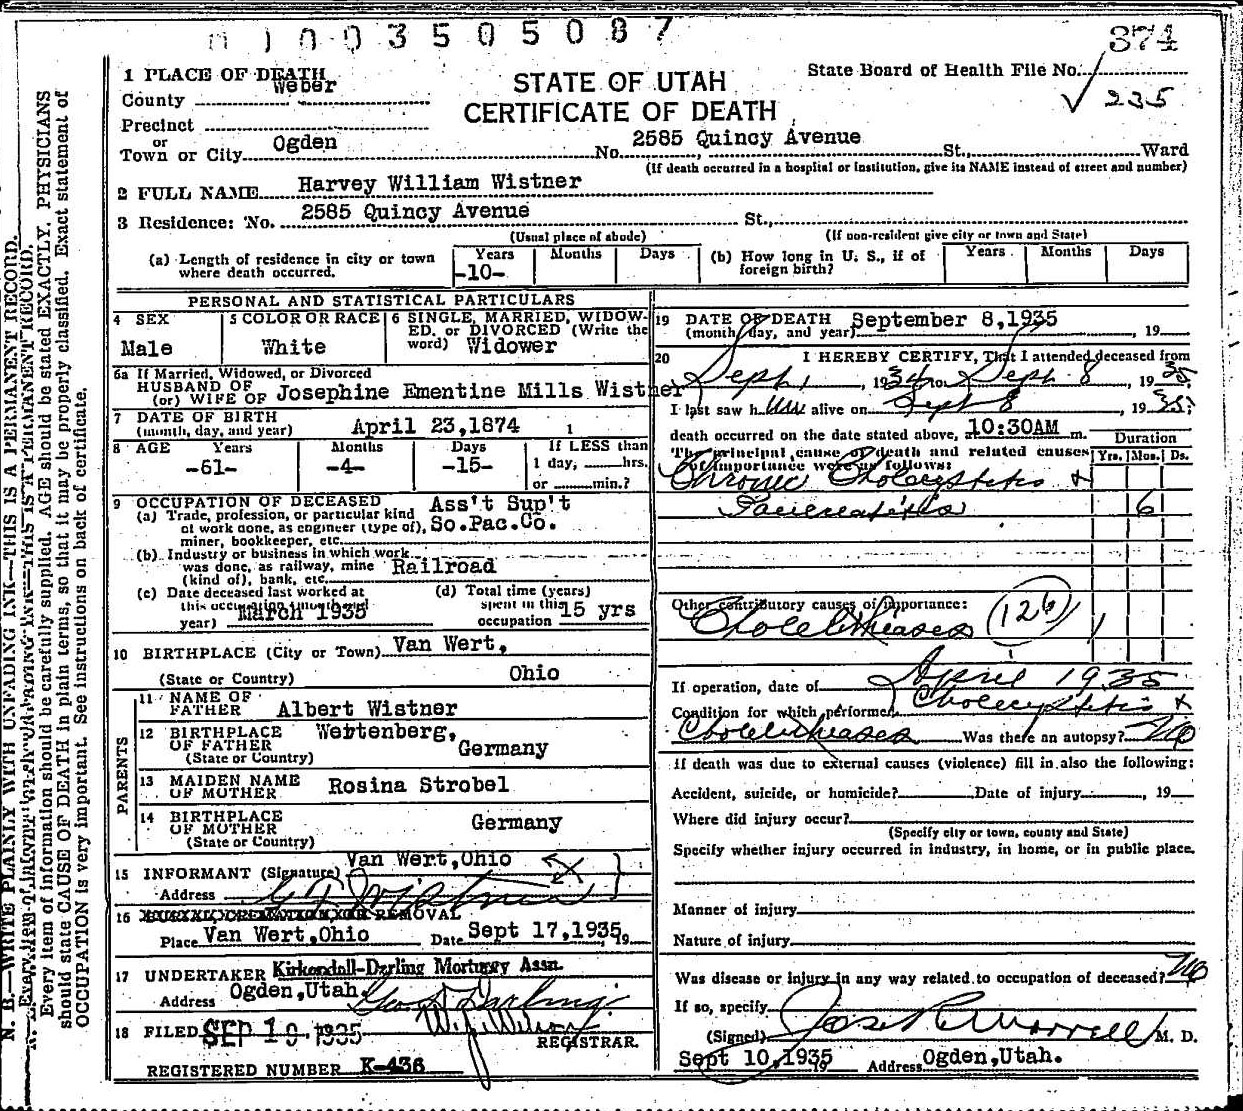 0 1 0 0 3 5 0 5 0 8 7
374
1 PLACE OF DEATH
STATE OF UTAH
State Board of Health File No.
County Weber
CERTIFICATE OF DEATH
235
Precinct
or
Town or City Ogden No. 2585 Quincy Avenue St., Ward
(If death occurred in a hospital or institution, give its NAME instead of street and number)
2 FULL NAME Harvey William Wistner
3 Residence: No. 2585 Quincy Avenue St.,
(Usual place of abode) (If non-resident give city or town and State)
(a) Length of residence in city or town where death occurred. Years -10- Months Days
(b) How long in U. S., if of foreign birth? Years Months Days
PERSONAL AND STATISTICAL PARTICULARS
4 SEX Male
5 COLOR OR RACE White
6 SINGLE, MARRIED, WIDOW-
ED, or DIVORCED (Write the
word) Widower
6a If Married, Widowed, or Divorced
HUSBAND OF
(or) WIFE OF Josephine Ementine Mills Wistner
7 DATE OF BIRTH
(month, day, and year) April 23,1874
8 AGE Years -61- Months -4- Days -15-
If LESS than
1 day, hrs.
or min.?
9 OCCUPATION OF DECEASED Ass't Sup't
(a) Trade, profession, or particular kind
of work done, as engineer (type of), So.Pac.Co.
miner, bookkeeper, etc.
(b) Industry or business in which work
was done, as railway, mine Railroad
(kind of), bank, etc.
(c) Date deceased last worked at
this occupation
year) March 1935
(d) Total time (years)
spent in this
occupation 15 yrs
10 BIRTHPLACE (City or Town) Van Wert,
(State or Country) Ohio
PARENTS
11 NAME OF
FATHER Albert Wistner
12 BIRTHPLACE
OF FATHER
(State or Country) Wertenberg,
Germany
13 MAIDEN NAME
OF MOTHER Rosina Strobel
14 BIRTHPLACE
OF MOTHER
(State or Country) Germany
15 INFORMANT (Signature) Van Wert,Ohio
Address
16 BURIAL, CREMATION, OR REMOVAL
Place Van Wert,Ohio Date Sept 17,1935, 19
17 UNDERTAKER Kirkendall-Darling Mortuary Assn.
Address Ogden,Utah. Geo. Darling
18 FILED SEP 19 1935
REGISTRAR.
REGISTERED NUMBER K-436
19 DATE OF DEATH
(month, day, and year) September 8,1935, 19
20 I HEREBY CERTIFY, That I attended deceased from
Sept 1, 1934 to Sept 8, 1935
I last saw him alive on Sept 8, 1935;
death occurred on the date stated above, 10:30AM m.
Duration
The principal cause of death and related causes
of importance were as follows:
Yrs. Mos. Ds.
Chronic Cholecystitis +
Pancreatitis 6
Other contributory causes of importance:
Cholelithiasis 126 1
If operation, date of April 1935
Condition for which performed Cholecystitis +
Cholelithiasis Was there an autopsy? No
If death was due to external causes (violence) fill in also the following:
Accident, suicide, or homicide? Date of injury , 19
Where did injury occur?
(Specify city or town, county and State)
Specify whether injury occurred in industry, in home, or in public place.
Manner of injury
Nature of injury
Was disease or injury in any way related to occupation of deceased? No
If so, specify
(Signed) Jos R Morrell M. D.
Sept 10,1935 19 Address Ogden,Utah.
N. B.—WRITE PLAINLY WITH UNFADING INK—THIS IS A PERMANENT RECORD.
Every item of information should be carefully supplied. AGE should be stated EXACTLY. PHYSICIANS
should state CAUSE OF DEATH in plain terms, so that it may be properly classified. Exact statement of
OCCUPATION is very important. See instructions on back of certificate.